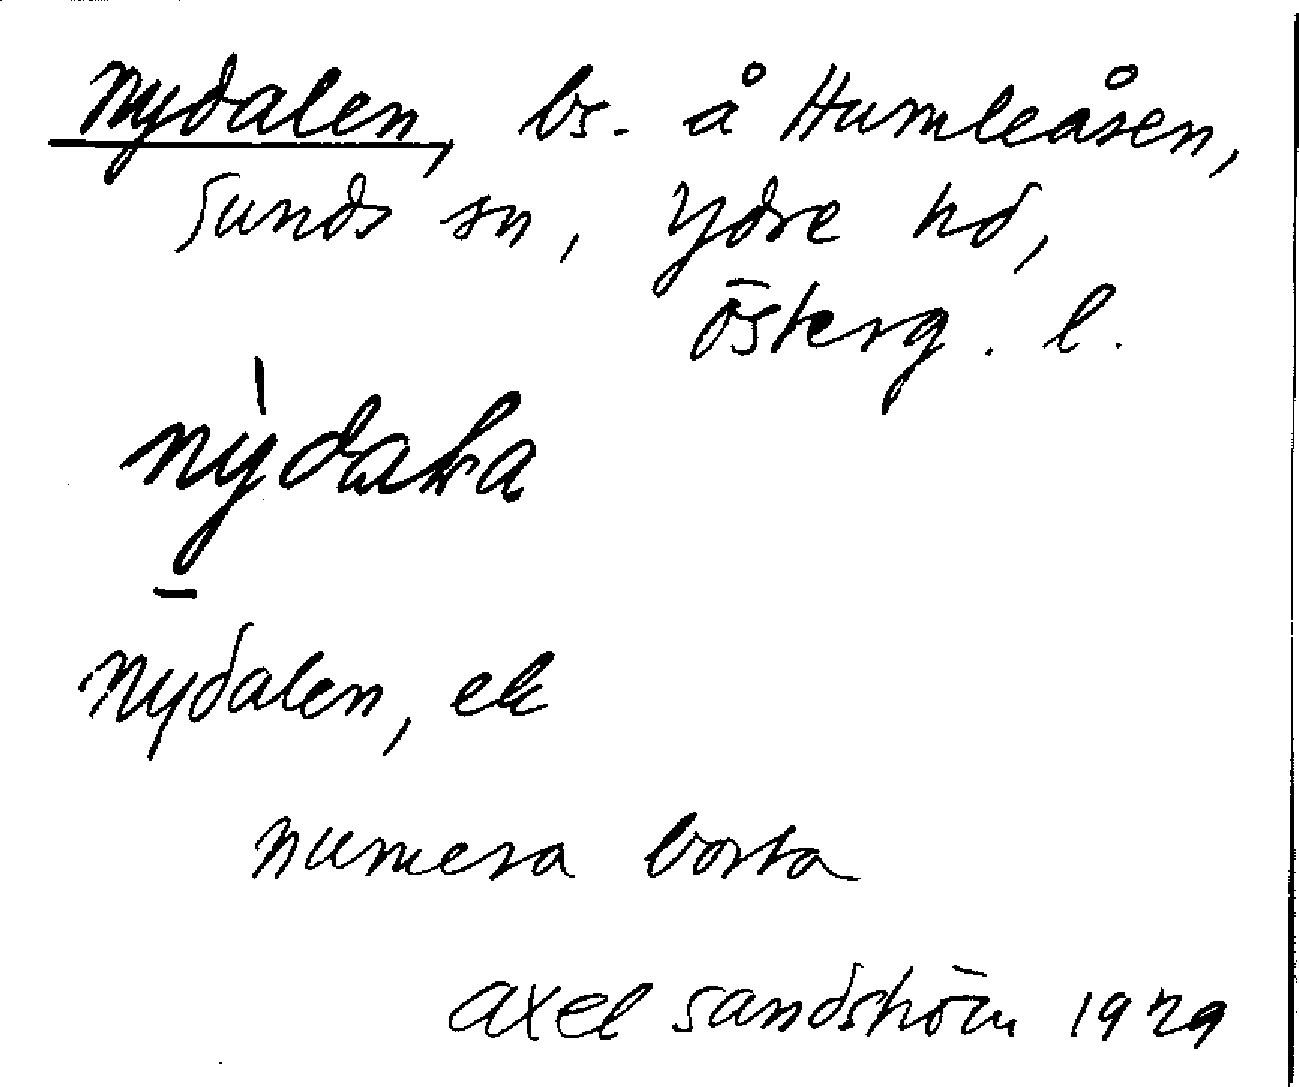 Nydalen, bs. å Humleåsen,
Sunds sn, Ydre hd,
Österg. l.
Nydalen, ek
numera borta
Axel Sandström 1929